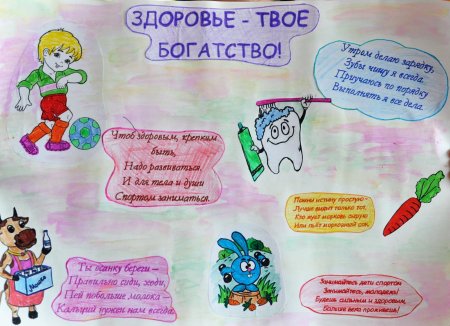 ЗДОРОВЬЕ - ТВОЕ
БОГАТСТВО!
Утром делаю зарядку,
Зубы чищу я всегда.
Приучаюсь по порядку
Выполнять я все дела.
Чтоб здоровым, крепким
быть,
Надо развиваться.
И для тела и души
Спортом заниматься.
Помни истину простую –
Лучше видит только тот,
Кто жуёт морковь сырую
Или пьёт морковный сок.
Ты осанку береги –
Правильно сиди, ходи,
Пей побольше молока –
Кальций нужен нам всегда.
Занимайтесь дети спортом
Занимайтесь, молодежь!
Будешь сильным и здоровым,
Больше века проживешь!